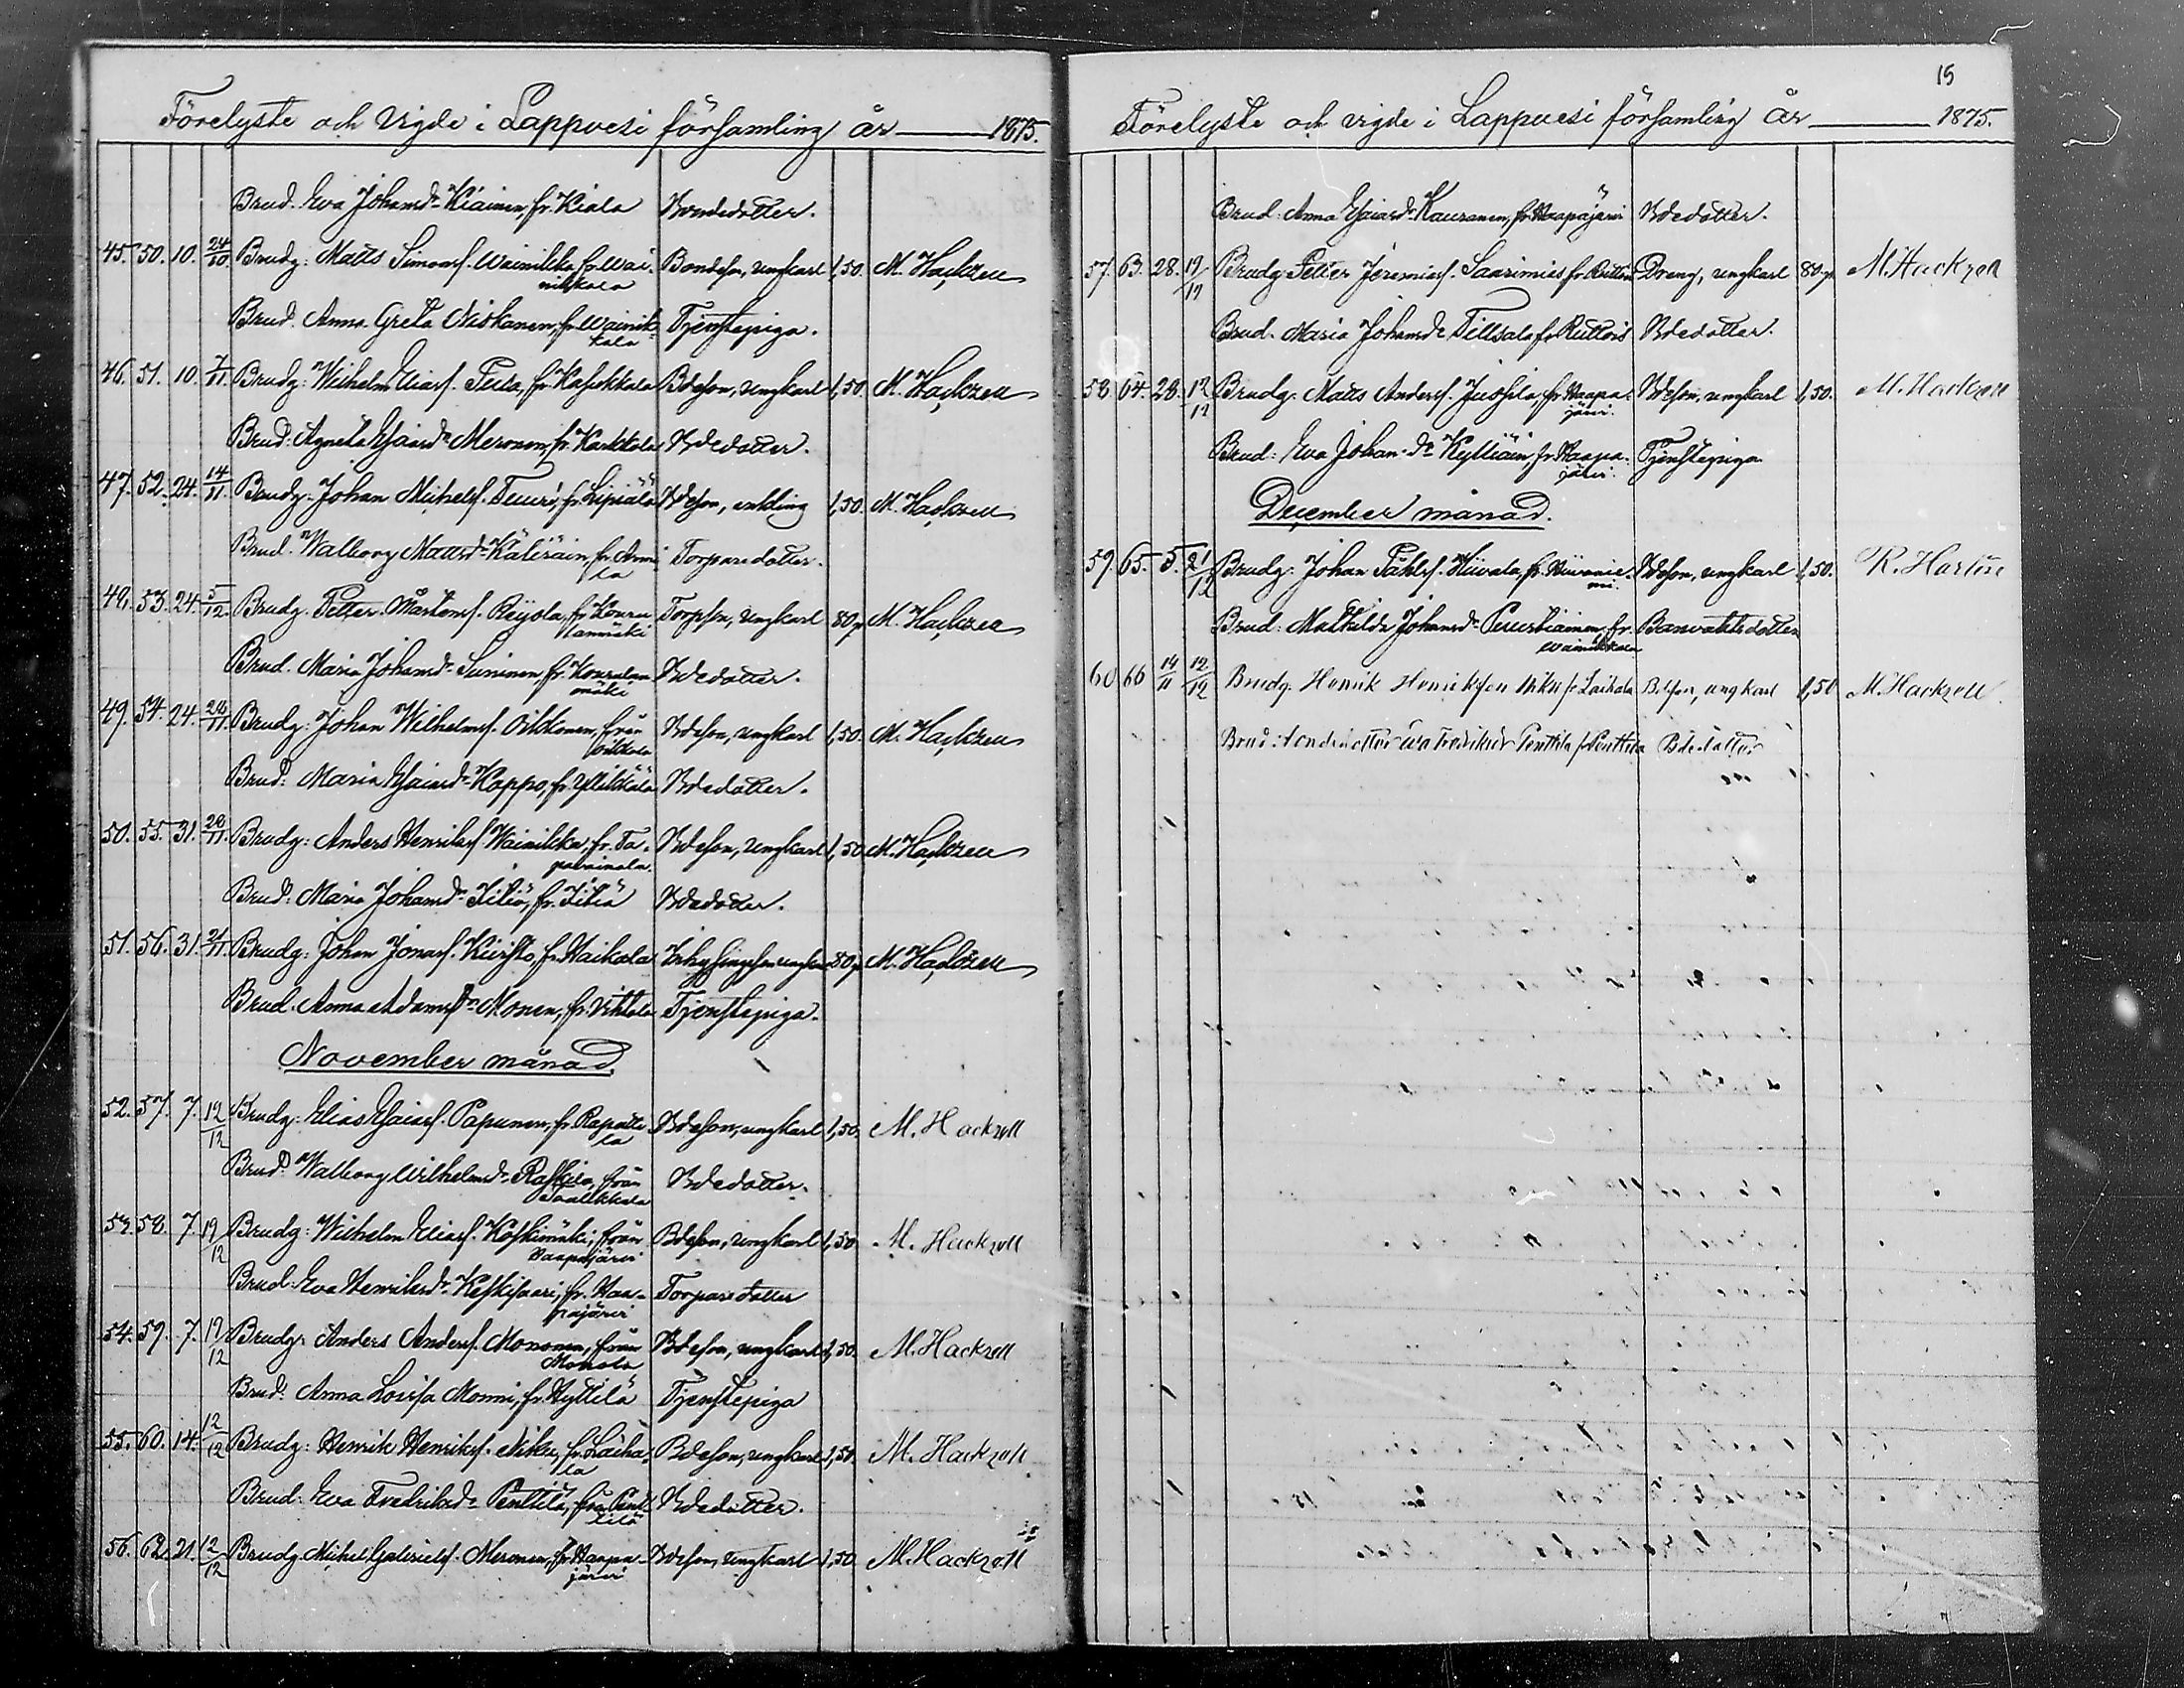 Förelyste och vigde i Lappvesi församling år 1875.
Brud. Eva Johansdr Kiainen, fr. Kiala Bondedotter.
45. 50. 10. 24/10. Brudg: Matts Simonss. Wainikka, fr. Wai- Bondeson, ungkarl 1,50. M. Hackzell
nikkala
Brud. Anna Greta Niskanen, fr. Wainik- Tjenstepiga.
kala
46. 51. 10. 7/11. Brudg: Wilhelm Eliass. Tula, fr. Kasukkala Bdeson, ungkarl 1,50. M. Hackzell
Brud: Agneta Esaiasdr Meronen, fr. Karkkola Bdedotter.
47. 52. 24. 14/11. Brudg: Johan Michelss. Teuri, fr. Lipiälä Bdeson, enkling 1,50. M. Hackzell
Brud. Walborg Mattsdr Käliräin, fr. Anni- Torparedotter.
la
48. 53. 24. 5/12 Brudg. Petter Mårtenss. Reijola, fr. Konnu- Torpson, ungkarl 80 p M. Hackzell
Brud. Maria Johansdr Suninen, fr. Bdedotter.
mäki
49. 54. 24. 28/11. Brudg: Johan Wilhelmss. Oikkonen, från Bdeson, ungkarl 1,50. M. Hackzell
Oikkola
Brud: Maria Esaiasdr Kappo, fr. Yllikkälä Bdedotter.
50. 55. 31. 28/11. Brudg: Anders Henrikss. Wainikka, fr. Ta- Bdeson, ungkarl 1,50 M. Hackzell
pavainola.
Brud: Maria Johansdr Jitiä, fr. Jitiä Bdedotter.
51. 56. 31. 21/11. Brudg: Johan Jonass. Kuisto, fr. Haikala 80 p M. Hackzell
Brud. Anna Adamsdr Monen, fr. Viktola Tjenstepiga.
November månad.
52. 57. 7. 12/12 Brudg: Elias Esaiass. Papunen, fr. Rapatti- Bdeson, ungkarl 1,50. M. Hackzell
la
Brud. Walborg Wilhelmsdr Raskia, från Bdedotter.
53. 58. 7. 19/12 Brudg: Wilhelm Eliass. Koskimäki, från Bdeson, ungkarl 1,50 M. Hackzell
Haapajärvi
Brud. Eva Henriksdr Keskisaari, fr. Haa- Torparedotter
pajärvi
54. 59. 7. 19/12 Brudg: Anders Anderss. Mononen, från Bdeson, ungkarl 1,50. M. Hackzell
Monola
Brud. Anna Lovisa Monni, fr. Hyttilä Tjenstepiga
55. 60. 14. 12/12 Brudg: Henrik Henrikss. Niku, fr. Laiha- Bdeson, ungkarl 1,50. M. Hackzell
la
Brud: Eva Fredriksdr Penttilä, fr. Pent- Bdedotter.
tilä
56. 62. 21. 12/12 Brudg. Michel Gabrielss. Meronen, fr. Haapa- Bdeson, ungkarl 1,50. M. Hackzell
järvi
15
Förelyste och vigde i Lappvesi församling år 1875.
Brud. Anna Esaiasdr Kauranen, fr. Haapajärvi Bdedotter.
57. 63. 28. 19/12 Brudg. Petter Jeremiass. Saarimies fr. Ruttois Dreng, ungkarl 80 p M. Hackzell
Brud. Maria Johansdr Tillsala fr. Ruttois Bdedotter.
58. 64. 28. 12/12 Brudg. Matts Anderss. Jussila, fr. Haapa- Bdeson, ungkarl 1,50. M. Hackzell
järvi.
Brud: Eva Johansdr Kylliäin, fr. Haapa- Tjenstepiga
järvi.
December månad.
59. 65. 5. 21/12 Brudg: Johan Påhlss. Hiivala, fr. Hiivanie- Bdeson, ungkarl 1,50. K. Harlin
mi.
Brud: Mathilda Johansdr fr. Banvaktsdotter
Wainikkala
60 66 14/11 12/12 Brudg. Henrik Henriksson Niku fr Laihala Bdson, ungkarl 1,50 M. Hackzell.
Brud: Bondedotter Eva Fredriksdr Penttila fr Penttila Bdedotter